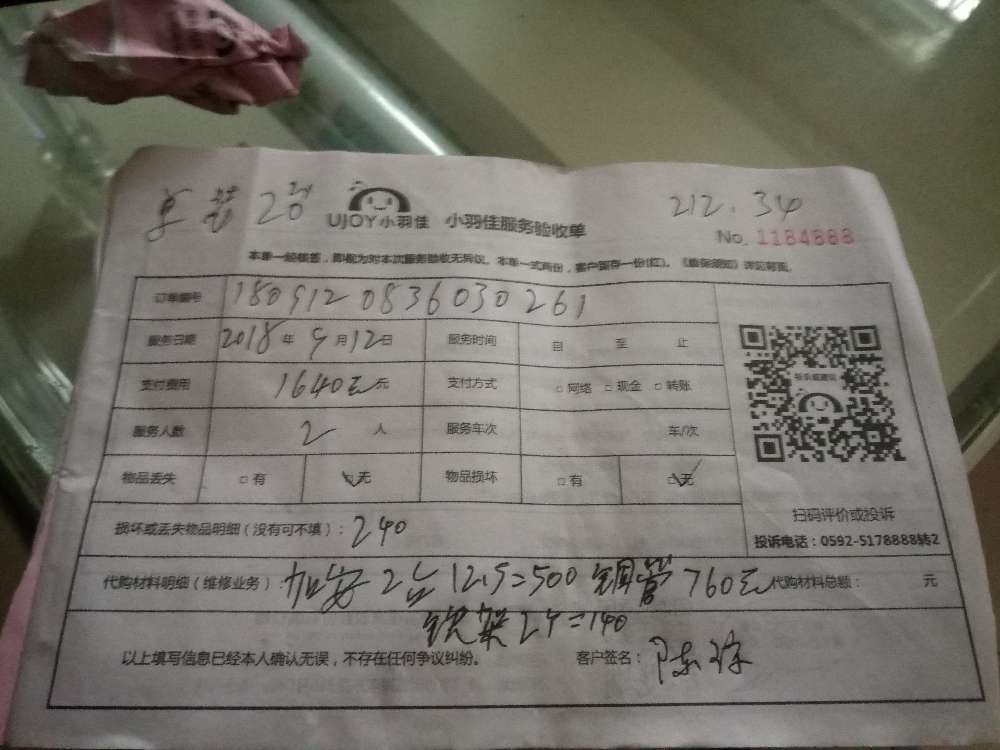 212.34
UJOY小羽佳 小羽佳服务验收单
No. 1184888
本单一经核签，即视为对本次服务验收无异议。本单一式两份，客户留存一份(红)。
订单编号 1809120836030261
服务日期 2018年9月12日 服务时间 自 至 止
支付费用 1640元 元 支付方式 □网络 □现金 □转账
服务人数 2 人 服务车次 车/次
物品丢失 □有 ☑无 物品损坏 □有 ☑无
扫码评价或投诉
投诉电话：0592-5178888转2
损坏或丢失物品明细（没有可不填）：240
代购材料明细（维修业务）：加安2台12.5=500 铜管760元 代购材料总额： 元
铁架2个=140
以上填写信息已经本人确认无误，不存在任何争议纠纷。 客户签名：陈